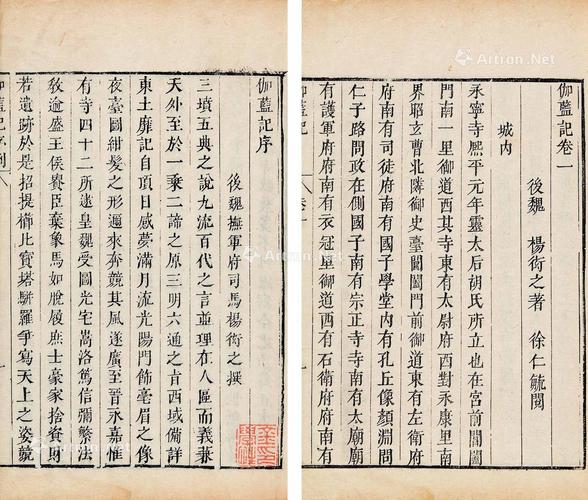 伽藍記卷一
後魏 楊衒之著 徐仁毓閱
城内
永寧寺熙平元年靈太后胡氏所立也在宮前閶闔
門南一里御道西其寺東有太尉府西對永康里南
界昭玄曹北隣御史臺閶闔門前御道東有左衛府
府南有司徒府府南有國子學堂内有孔丘像顏淵問
仁子路問政在側國子南有宗正寺寺南有太廟廟
有護軍府府南有衣冠里御道西有石衛府府南有
伽藍記序
後魏撫軍府司馬楊衒之撰
三墳五典之說九流百代之言並理在人區而義兼
天外至於一乘二諦之原三明六通之旨西域備詳
東土靡記自項日感夢滿月流光陽門飾毫眉之像
夜臺圖紺髮之形邇來奔競其風遂廣至晉永嘉惟
有寺四十二所逮皇魏受圖光宅嵩洛篤信彌繁法
教逾盛王侯貴臣棄象馬如脫屣庶士豪家捨資財
若遺跡於是招提櫛比寶塔駢羅爭寫天上之姿競
Artron.Net